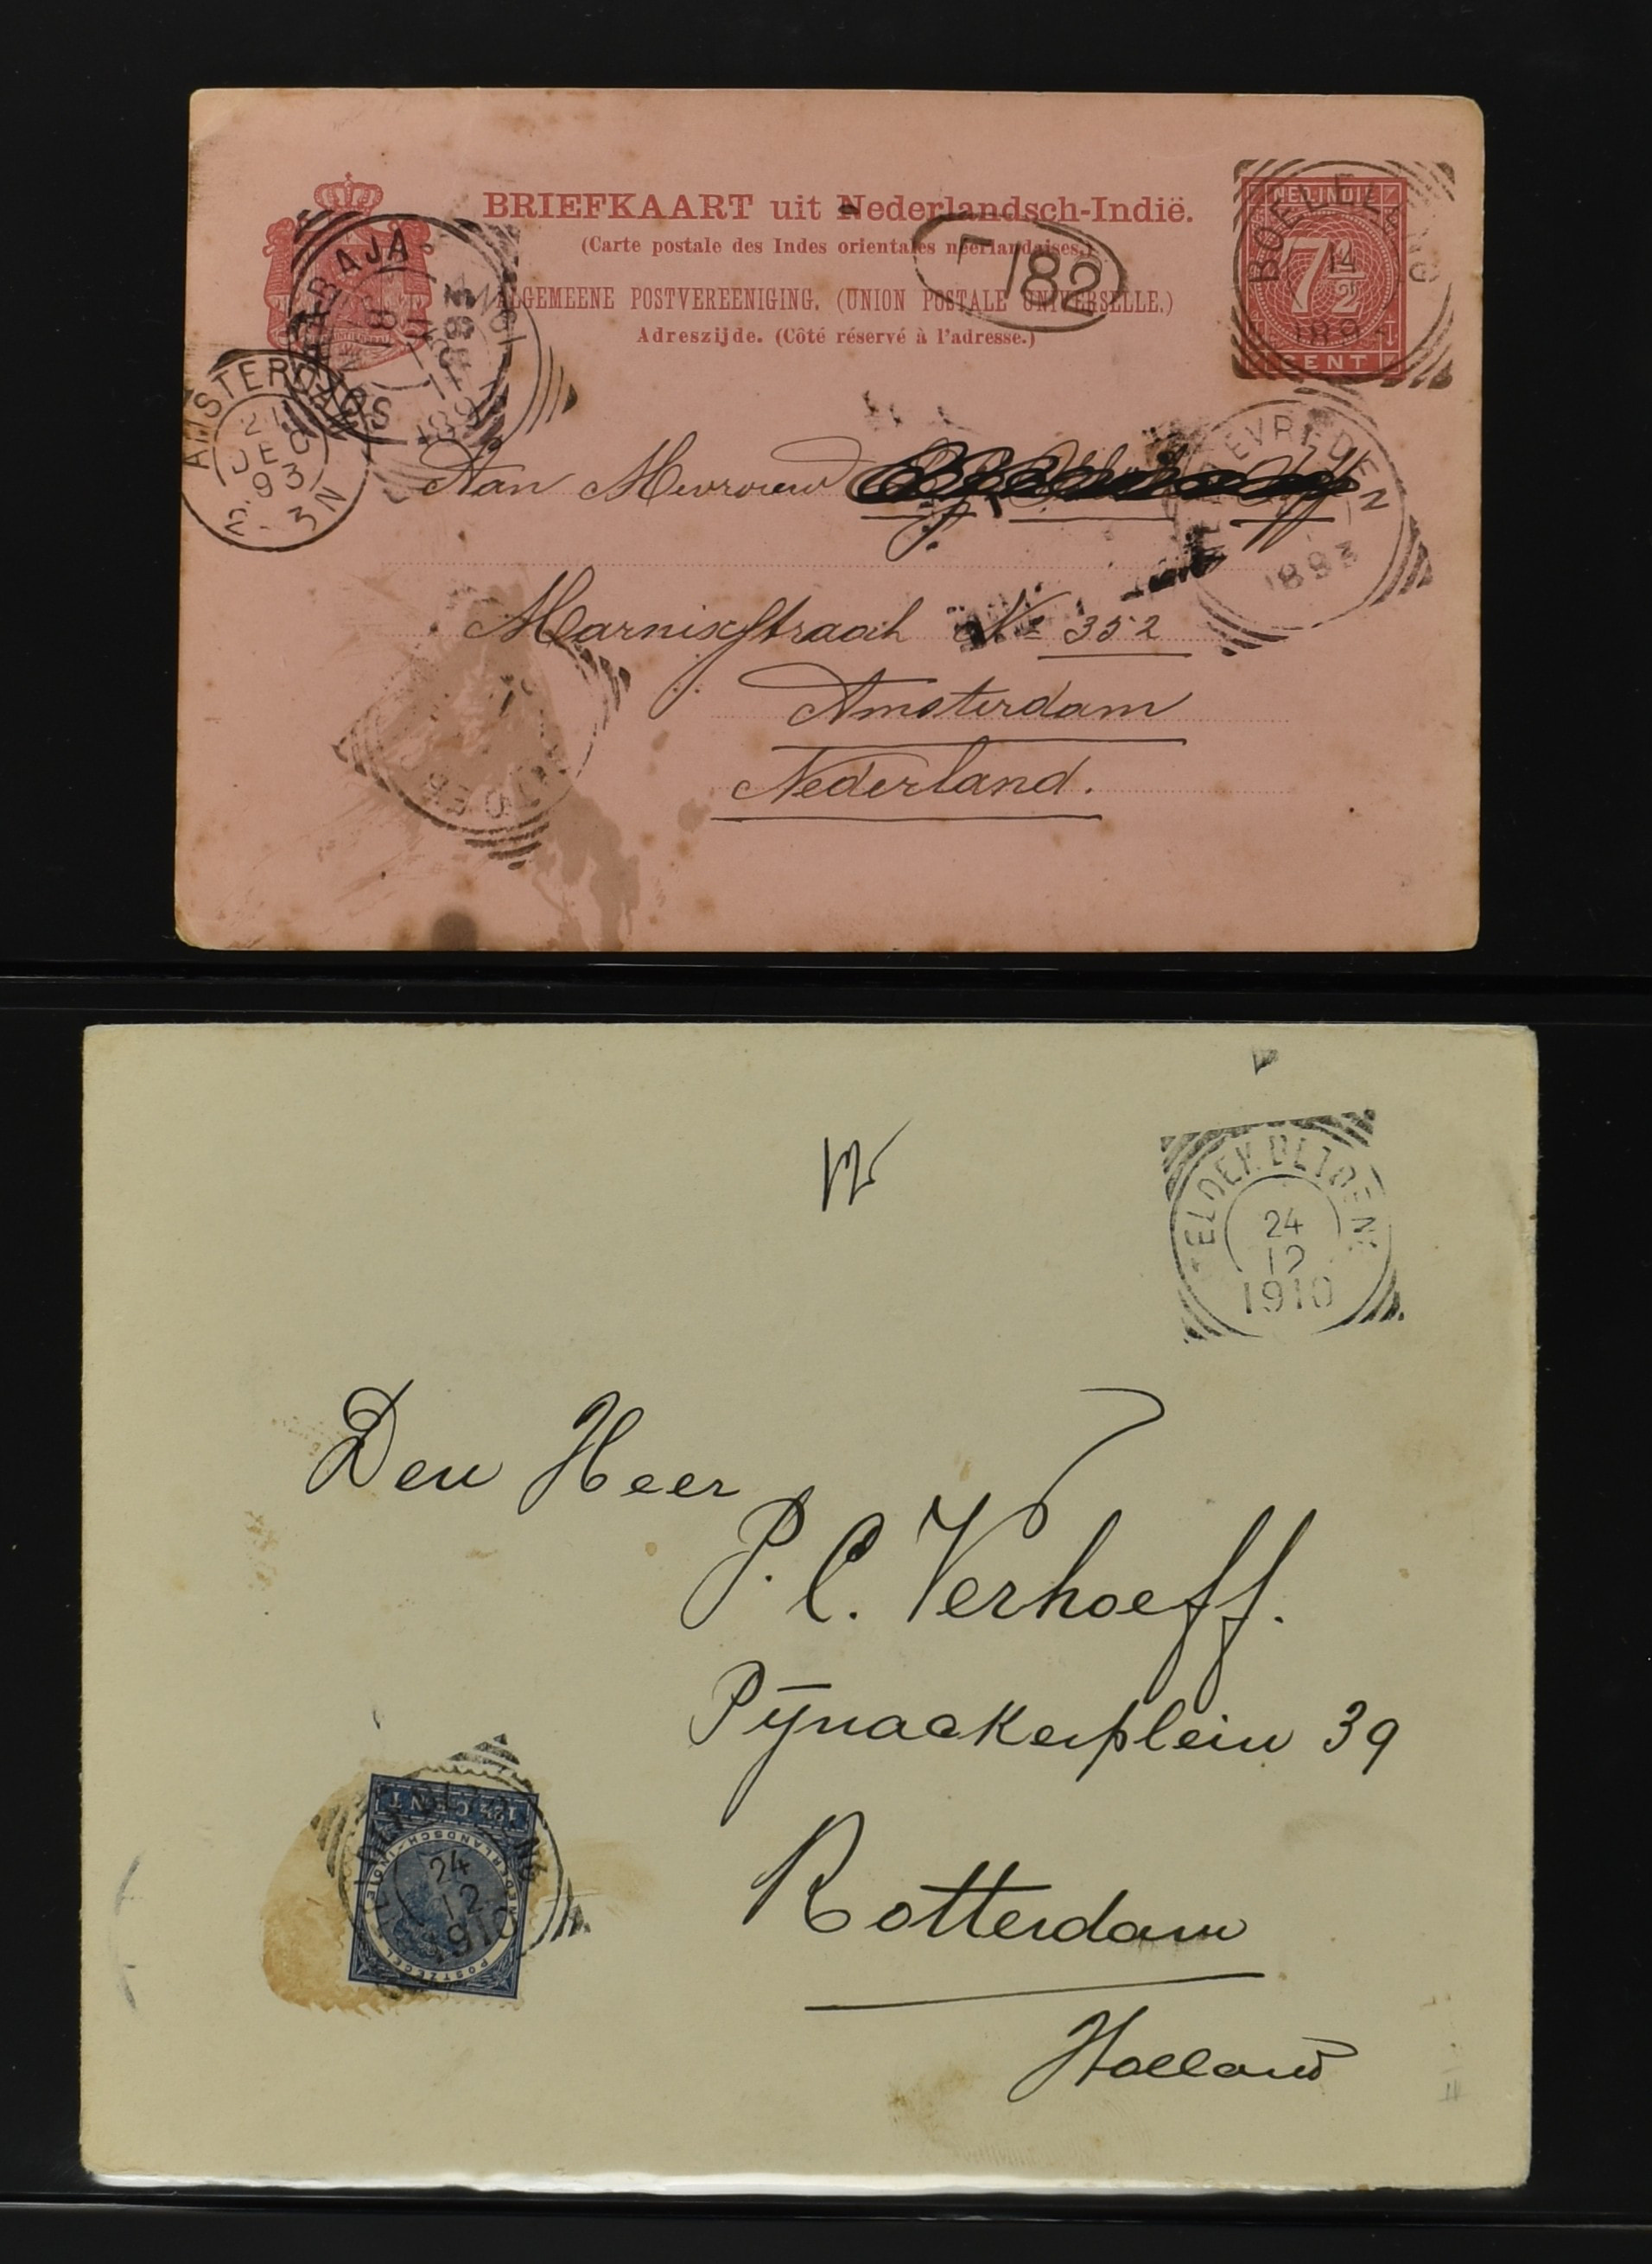 BRIEFKAART uit Nederlandsch-Indië.
(Carte postale des Indes orientales néerlandaises.)
ALGEMEENE POSTVEREENIGING. (UNION POSTALE UNIVERSELLE.)
Adreszijde. (Côté réservé à l'adresse.)
NED-INDIË
7½
CENT
BOELELENG
14
182
AMSTERDAM
21
DEC
93
2-3N
WELTEVREDEN
1893
Aan Mevrouw
Marnixstraat No 352
Amsterdam
Nederland.
24
12
1910
Den Heer
P. C. Verhoeff.
Pijnackerplein 39
Rotterdam
Holland
12½ CENT
NEDERLANDSCH-INDIË
POSTZEGEL
24
12
1910